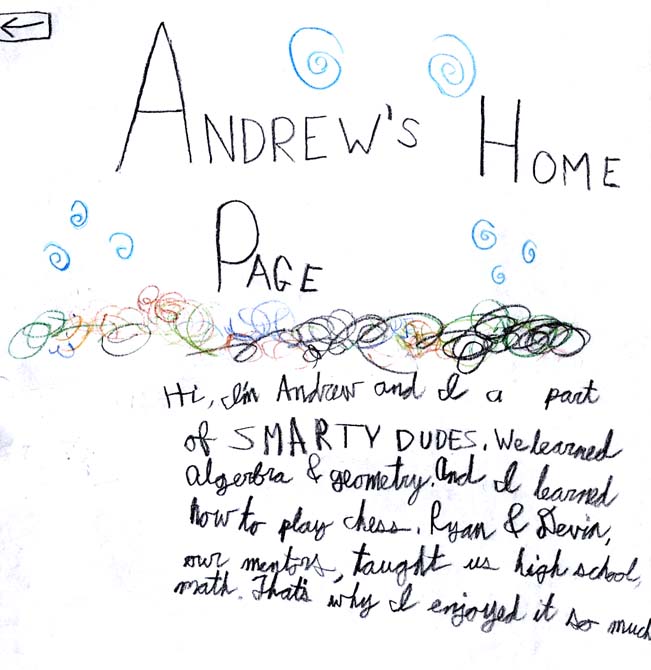 ANDREW'S HOME
PAGE
Hi, I'm Andrew and I a part
of SMARTY DUDES. We learned
algerbra & geometry. And I learned
how to play chess. Ryan & Devin,
our mentors, taught us high school,
math. That's why I enjoyed it so much